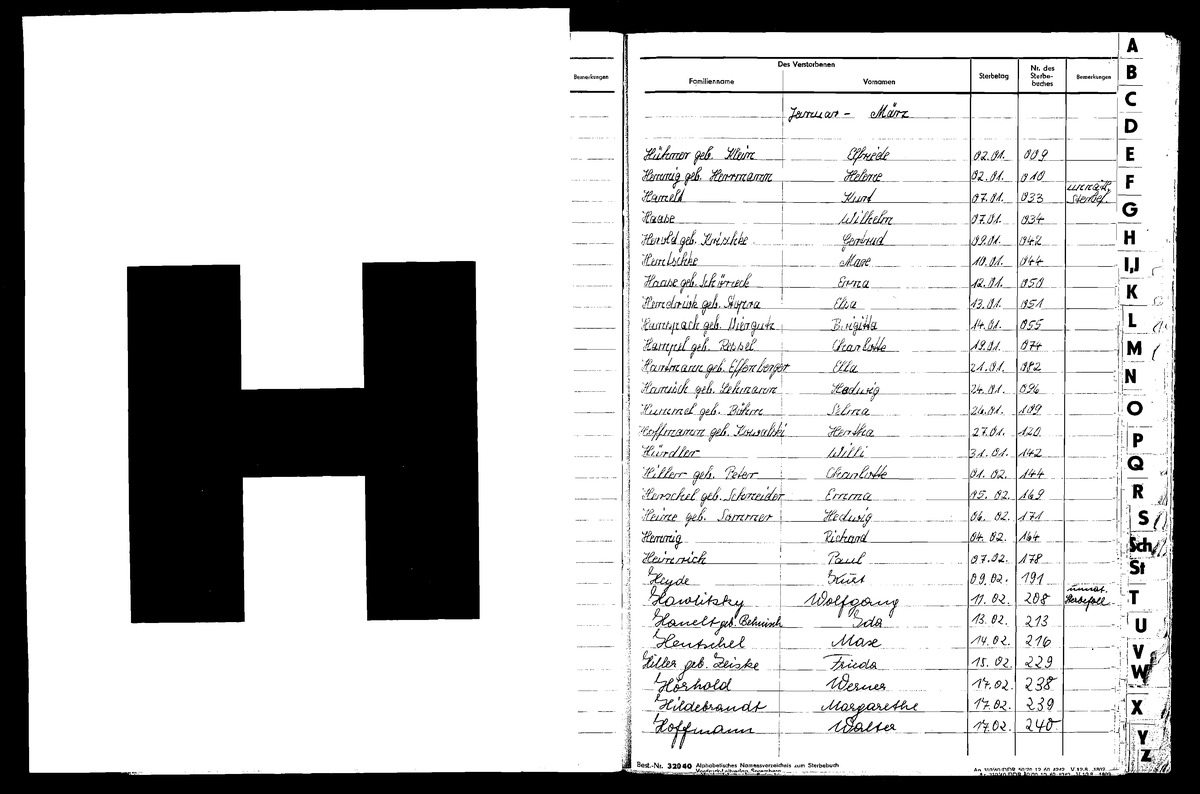 H
Bemerkungen
Des Verstorbenen
Familienname Vornamen Sterbetag Nr. des Sterbe- buches Bemerkungen
Januar - März
Hübner geb. Klein Elfriede 02.01. 009
Hennig geb. Herrmann Helene 02.01. 010
Kurt 07.01. 033
Haase Wilhelm 07.01. 034
Herold geb. Gertrud 09.01. 042
Hentschke Max 10.01. 044
Haase geb. Erna 12.01. 050
geb. Elsa 13.01. 051
geb. Viergutz Brigitta 14.01. 055
Hampel geb. Ressel Charlotte 19.01. 074
Hartmann geb. Effenberger Ella 21.01. 082
Hanisch geb. Lehmann Hedwig 24.01. 096
Hummel geb. Böhm Selma 26.01. 109
Hoffmann geb. Kowalski Hertha 27.01. 120
Hürdler Willi 31.01. 142
Hillerr geb. Peter Charlotte 01.02. 144
Herschel geb. Schneider Emma 05.02. 169
Heine geb. Sommer Hedwig 06.02. 171
Hennig Richard 04.02. 164
Heinrich Paul 07.02. 178
Heyde Kurt 09.02. 191
Hawlitzky Wolfgang 11.02. 208
Hanelt geb. Behnisch Ida 13.02. 213
Hentschel Max 14.02. 216
Hiller geb. Zeiske Frieda 15.02. 229
Hörhold Werner 17.02. 238
Hildebrandt Margarethe 17.02. 239
Hoffmann Walter 17.02. 240
Best.-Nr. 32040 Alphabetisches Namensverzeichnis zum Sterbebuch
A
B
C
D
E
F
G
H
I,J
K
L
M
N
O
P
Q
R
S
Sch
St
T
U
V
W
X
Y
Z